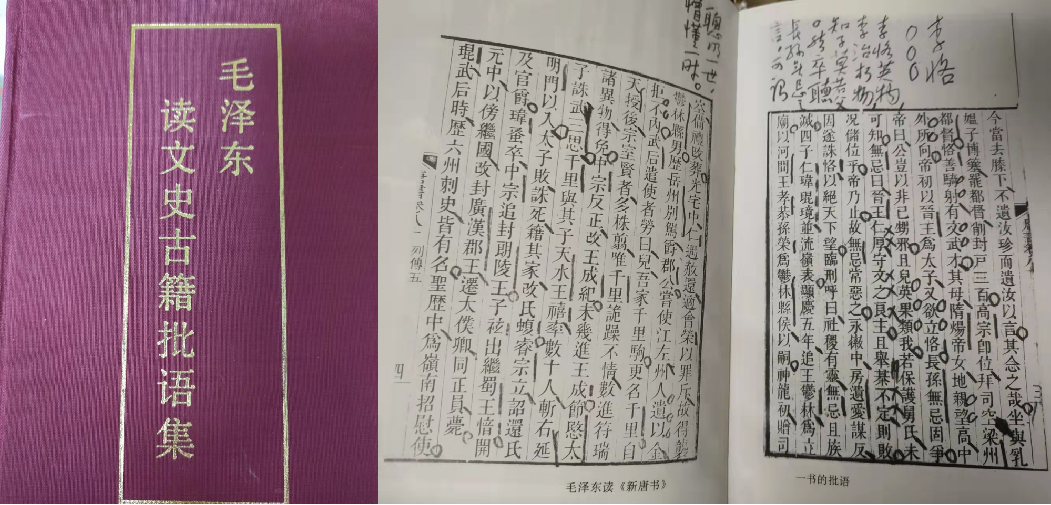 毛泽东
读文史古籍批语集
聪明一世、
懵懂一时。
備禮改葬光宅中仁遇赦還適會榮以罪斥故得襲
鬱林縣男歷岳州別駕爵郡公嘗使江左州人遺以金
拒不內武后遣使者勞曰兒吾家千里駒更名千里自
天授後宗室賢者多株翦唯千里詭躁不情數進符瑞
諸異物得免中宗反正改王成紀未幾進王成節愍太
子誅武三思千里與其子天水王禧率數十人斬右延
明門以入太子敗誅死籍其家改氏蝮睿宗立詔還氏
及官爵瑋蚤卒中宗追封朗陵王子祛出繼蜀王愔開
元中以傍繼國改封廣漢郡王遷太僕卿同正員薨
琨武后時歷六州刺史皆有名聖歷中爲嶺南招慰使
列傳五
四
毛泽东读《新唐书》
李恪
李恪英物，
李治朽物，
知子莫若父
。然卒聽
長孫无忌之
言，可謂
今當去膝下不遺汝珍而遺汝以言其念之哉坐與乳
媼子博簺罷都督削封戶三百高宗卽位拜司空梁州
都督恪善騎射有文武才其母隋煬帝女地親望高中
外所向帝初以晉王爲太子又欲立恪長孫無忌固爭
帝曰公豈以非己甥邪且兒英果類我若保護舅氏未
可知無忌曰晉王仁厚守文之良主且舉棊不定則敗
況儲位乎帝乃止故無忌常惡之永徽中房遺愛謀反
因遂誅恪以絕天下望臨刑呼曰社稷有靈無忌且族
滅四子仁瑋琨璄並流嶺表顯慶五年追王鬱林爲立
廟以河間王孝恭孫榮爲鬱林縣侯以嗣神龍初贈司
一书的批语